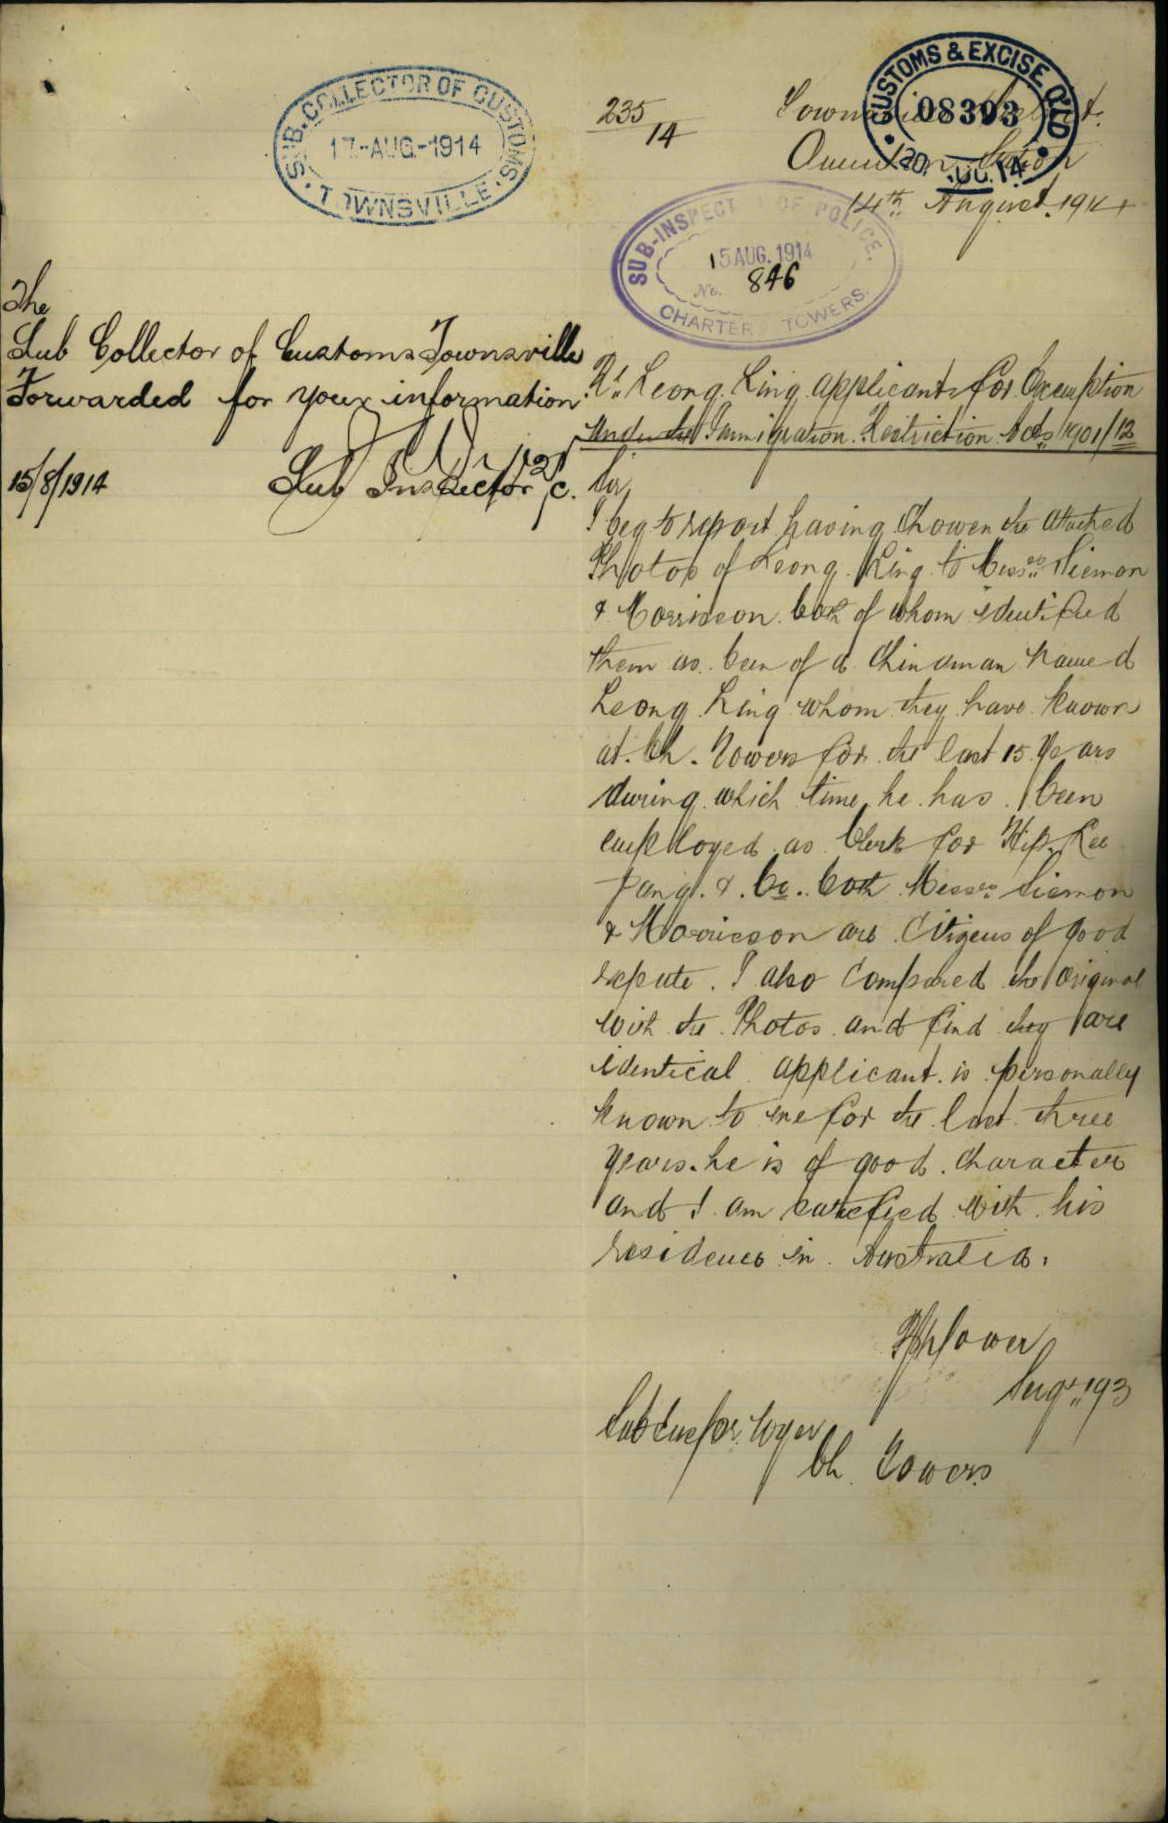 SUB-COLLECTOR OF CUSTOMS.
17-AUG-1914
TOWNSVILLE
235/14
CUSTOMS & EXCISE Q'LD
08393
Station
14th August 1914
SUB-INSPECTOR OF POLICE.
15 AUG. 1914
No. 846
CHARTERS TOWERS.
The
Sub Collector of Customs Townsville
Forwarded for your information
Sub Inspector
15/8/1914
Leong King applicant for Exemption
under the Immigration Restriction Acts 1901/12
Sir,
I beg to report having Showen the attached
Photos of Leong King to Messrs Siemon
& Morrisson both of whom identified
them as been of a Chinaman named
Leong King whom they have known
at Ch. Towers for the last 15 Years
during which time he has been
employed as Clerk for Hip Lee
& Co. both Messrs Siemon
& Morrisson are Citizens of good
repute. I also Compared the original
with the Photos and find they are
identical applicant is personally
known to me for the last three
years. he is of good Character
and I am satisfied with his
residence in Australia.
Sergt 193
Sub Inspr.
Ch. Towers